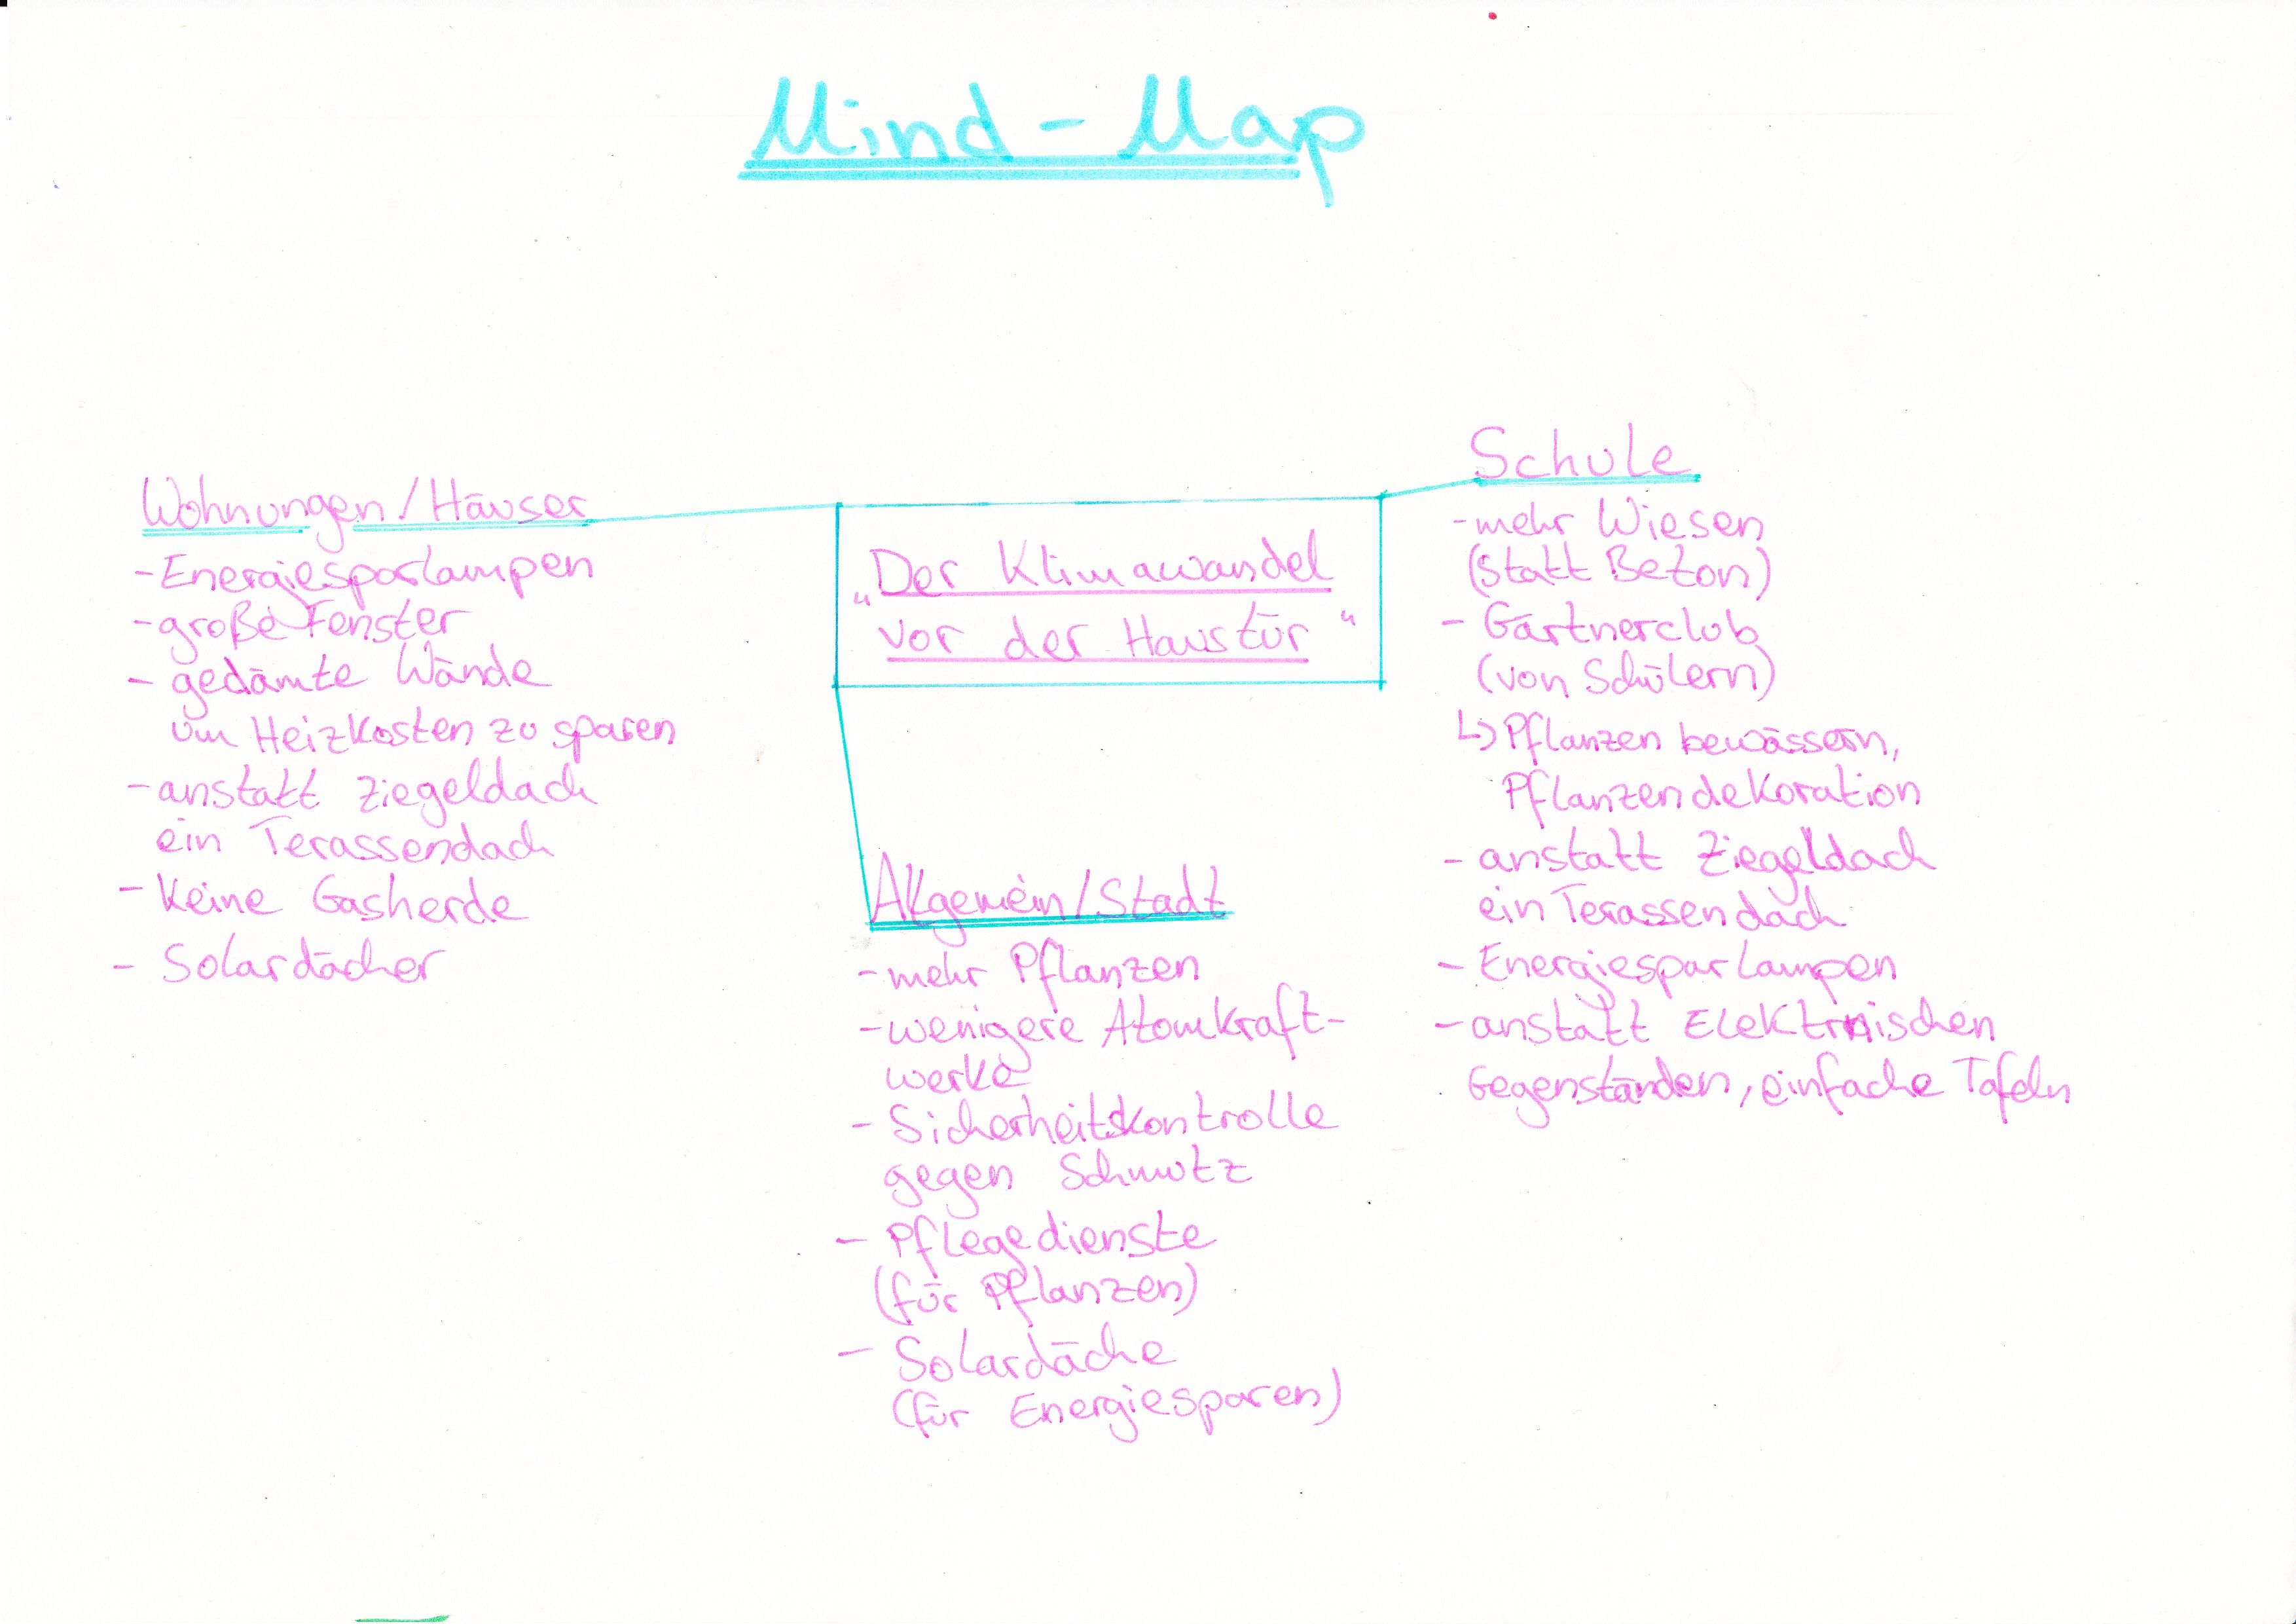 Mind-Map
Wohnungen/Häuser
-Energiesparlampen
-große Fenster
- gedämte Wände
um Heizkosten zu sparen
-anstatt Ziegeldach
ein Terassendach
- Keine Gasherde
- Solardächer
„Der Klimawandel
vor der Haustür“
Allgemein/Stadt
-mehr Pflanzen
-wenigere Atomkraft-
werke
- Sicherheitskontrolle
gegen Schmutz
- Pflegedienste
(für Pflanzen)
- Solardäche
(für Energiesparen)
Schule
-mehr Wiesen
(statt Beton)
- Gärtnerclub
(von Schülern)
↳ Pflanzen bewässern,
Pflanzendekoration
- anstatt Ziegeldach
ein Terassendach
- Energiesparlampen
- anstatt Elektrnischen
Gegenständen, einfache Tafeln